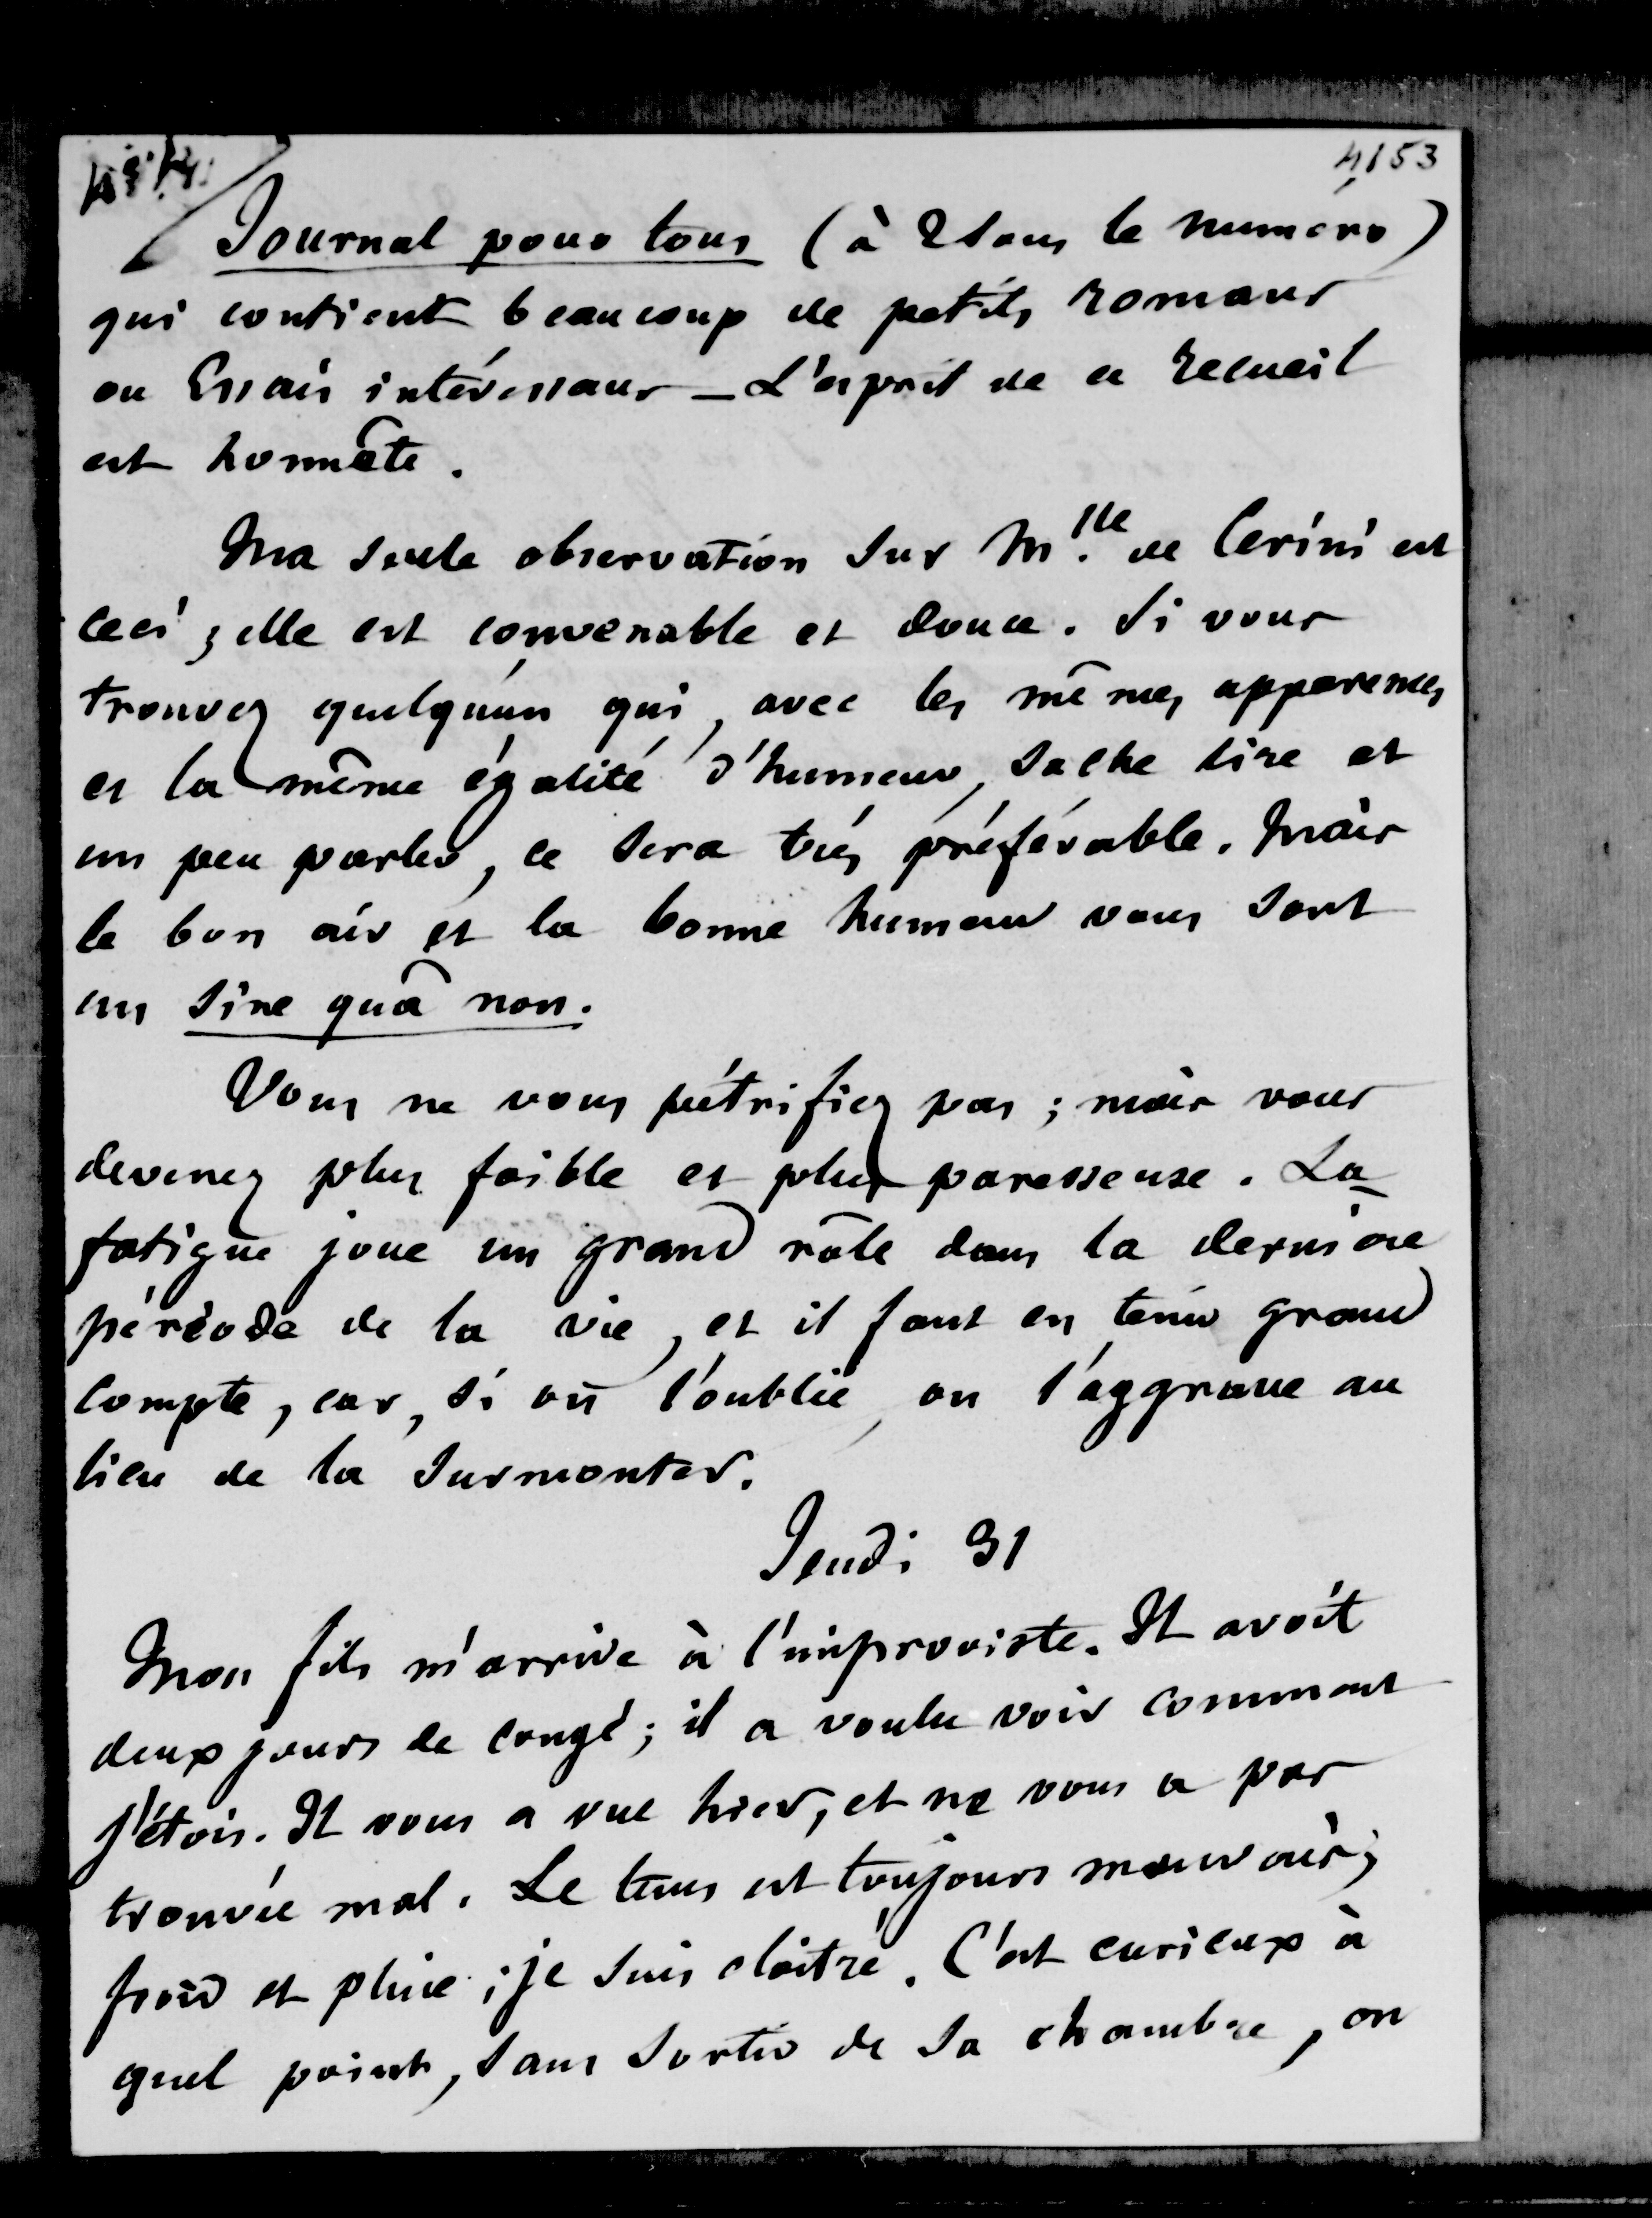 4153
Journal pour tous (à 2 sous le numéro)
qui contient beaucoup de petits romans
ou Essais intéressans _ L'esprit de ce recueil
est honnête.
Ma seule observation sur Mlle de Cerini est
ceci ; elle est convenable et douce. Si vous
trouvez quelqu'un qui, avec les mêmes apparences
et la même égalité d'humeur, sache lire et
un peu parler, ce sera très préférable. Mais
le bon air et la bonne humeur vous sont
un sine quâ non.
Vous ne vous pétrifiez pas ; mais vous
devenez plus faible et plus paresseuse. La
fatigue joue un grand rôle dans la dernière
période de la vie, et il faut en tenir grand
compte, car, si on l'oublie, on l'aggrave au
lieu de la surmonter.
Jeudi 31
Mon fils m'arrive à l'improviste. Il avoit
deux jours de congé ; il a voulu voir comment
j'étois. Il vous a vue hier, et ne vous a pas
trouvée mal. Le tems est toujours mauvais ;
froid et pluie ; je suis cloîtré. C'est curieux à
quel point, sans sortir de sa chambre, on